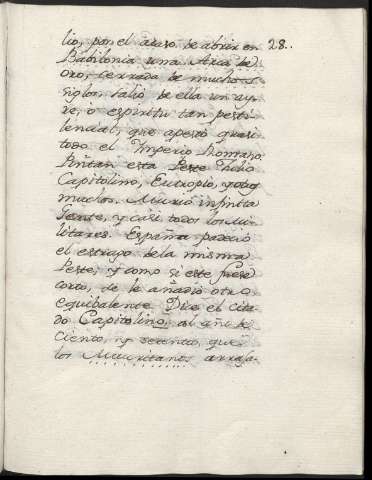 lio, por el acaso de abrir en 28..
Babilonia una Arca de
oro, cerrada de muchos S-
iglos, salió de ella un ay-
re, ò espiritu tan pesti-
lencial, que apestó quasi
todo el Imperio Romano.
Pintan esta Peste Julio
Capitolino, Eutropio, y otros
muchos. Murió infinita
Gente, y casi todos los Mi-
litares. España padeció
el estrago de la misma
Peste, y como si este fuese
corto, se le añadió otro
equibalente. Dice el cita-
do Capitolino, al año de
Ciento, y setenta, que
los Mauritanos arrasa-